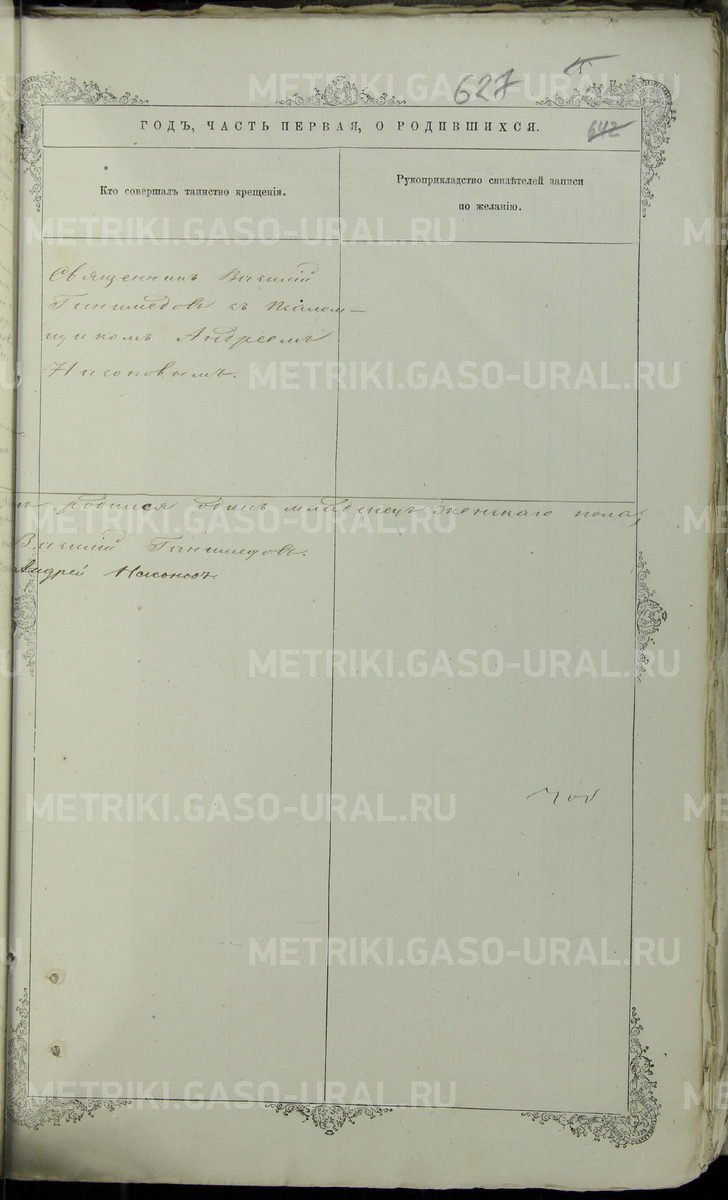 627
642
ГОДЪ, ЧАСТЬ ПЕРВАЯ, О РОДИВШИХСЯ.
Кто совершалъ таинство крещенія.
Рукоприкладство свидѣтелей записи
по желанію.
Священникъ Василій
Ганимедовъ съ Псалом-
щикомъ Андреемъ
Насоновымъ.
родился одинъ младенецъ женскаго пола,
Василій Ганимедовъ.
Андрей Насоновъ
METRIKI.GASO-URAL.RU